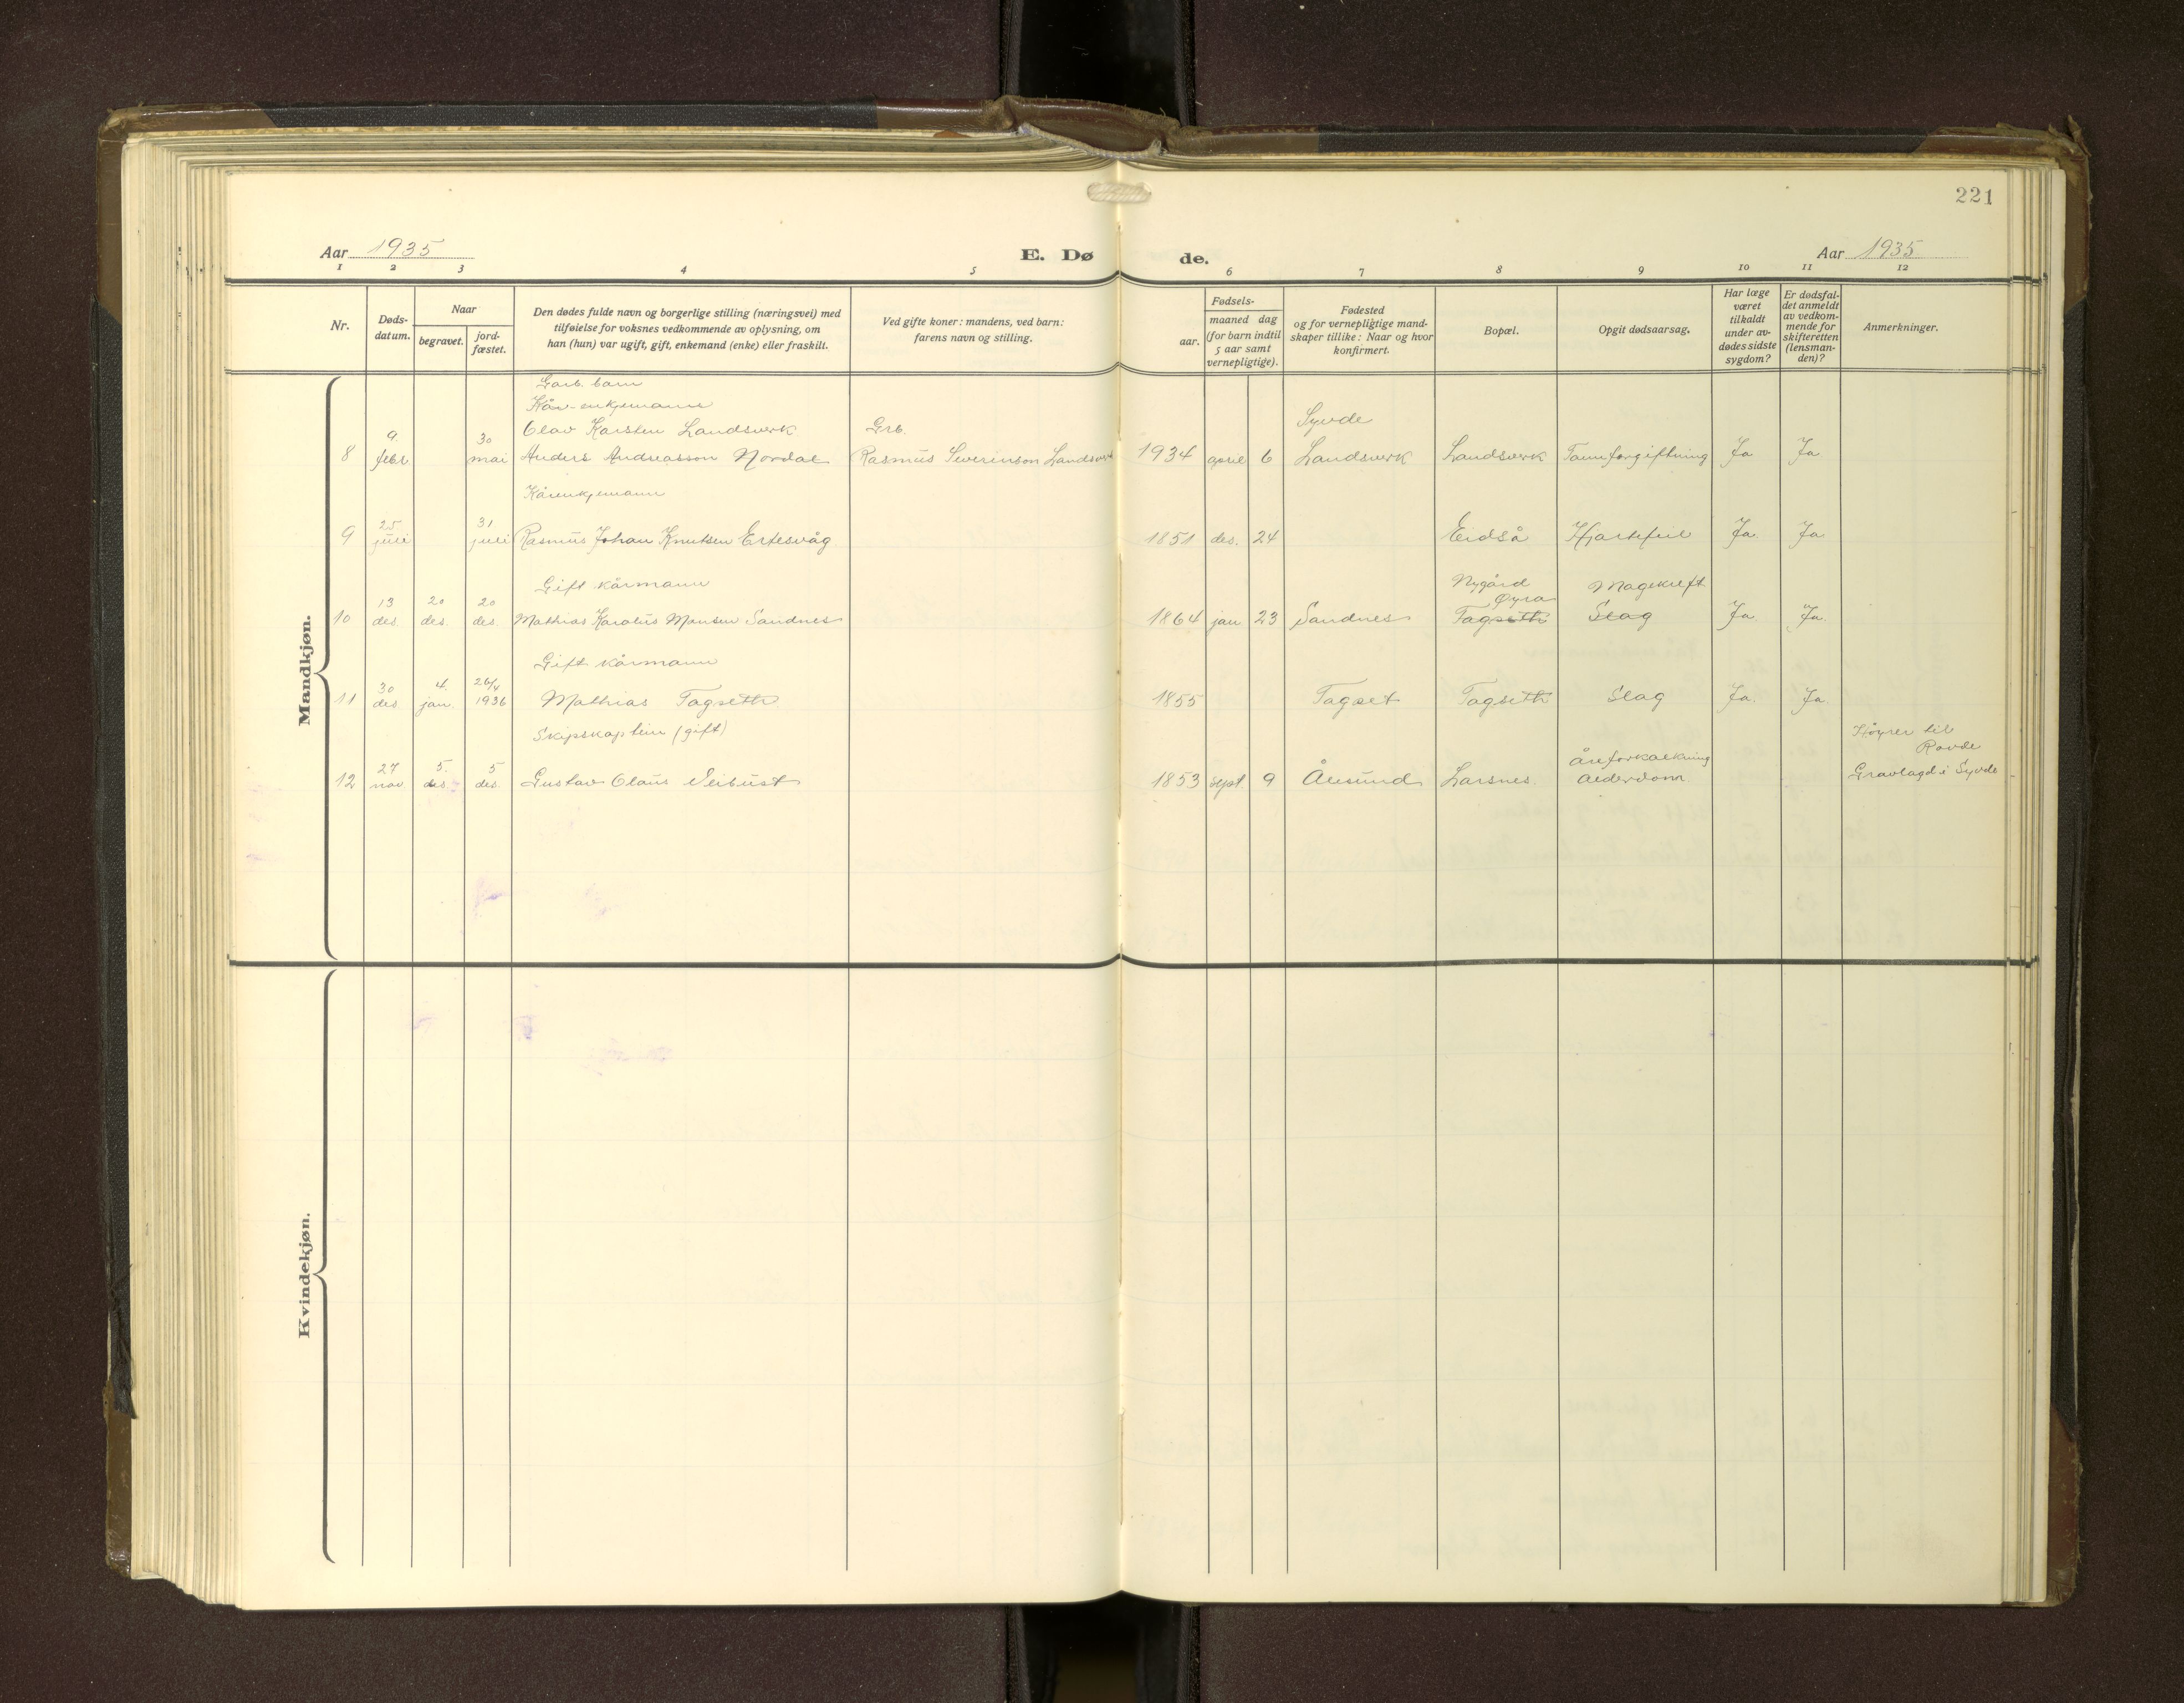 221
Aar 1935
E. Dø
de.
Aar 1935
1 2 3 4 5 6 7 8 9 10 11 12
Nr.
Døds-
datum.
Naar
begravet.
jord-
fæstet.
Den dødes fulde navn og borgerlige stilling (næringsvei) med
tilføielse for voksnes vedkommende av oplysning, om
han (hun) var ugift, gift, enkemand (enke) eller fraskilt.
Ved gifte koner: mandens, ved barn:
farens navn og stilling.
Fødsels-
aar.
maaned dag
(for barn indtil
5 aar samt
vernepligtige).
Fødested
og for vernepligtige mand-
skaper tillike: Naar og hvor
konfirmert.
Bopæl.
Opgit dødsaarsag.
Har læge
været
tilkaldt
under av-
dødes sidste
sygdom?
Er dødsfal-
det anmeldt
av vedkom-
mende for
skifteretten
(lensman-
den)?
Anmerkninger.
Mandkjøn.
Garb. barn
Kår-enkjemann
Olav Karsten Landsverk Grb. Syvde
8 9. febr 30 mai Anders Andreasson Nordal Rasmus Severinson Landsverk 1934 april 6 Landsverk Landsverk Tannforgiftning Ja Ja
Kårenkjemann
9 25. juli 31 juli Rasmus Johan Knutsen Ertesvåg 1851 des. 24 Eidså Hjartefeil Ja Ja
Gift kårmann Nygård Magekreft
Øyra
10 13 des. 20 des. 20 des. Mathias Karolus Monsen Sandnes 1864 jan 23 Sandnes Tagseth Slag Ja Ja
Gift kårmann
11 30 des 4. jan. 26/4 1936 Mathias Tagseth 1855 Tagset Tagseth Slag Ja Ja
Skipskaptein (gift) Høyrer til
Rovde
åreforkalkning
12 27 nov 5. des. 5 des. Gustav Olaus Neibust 1853 sept. 9 Ålesund Larsnes. alderdom Gravlagd i Syvde
Kvindekjøn.